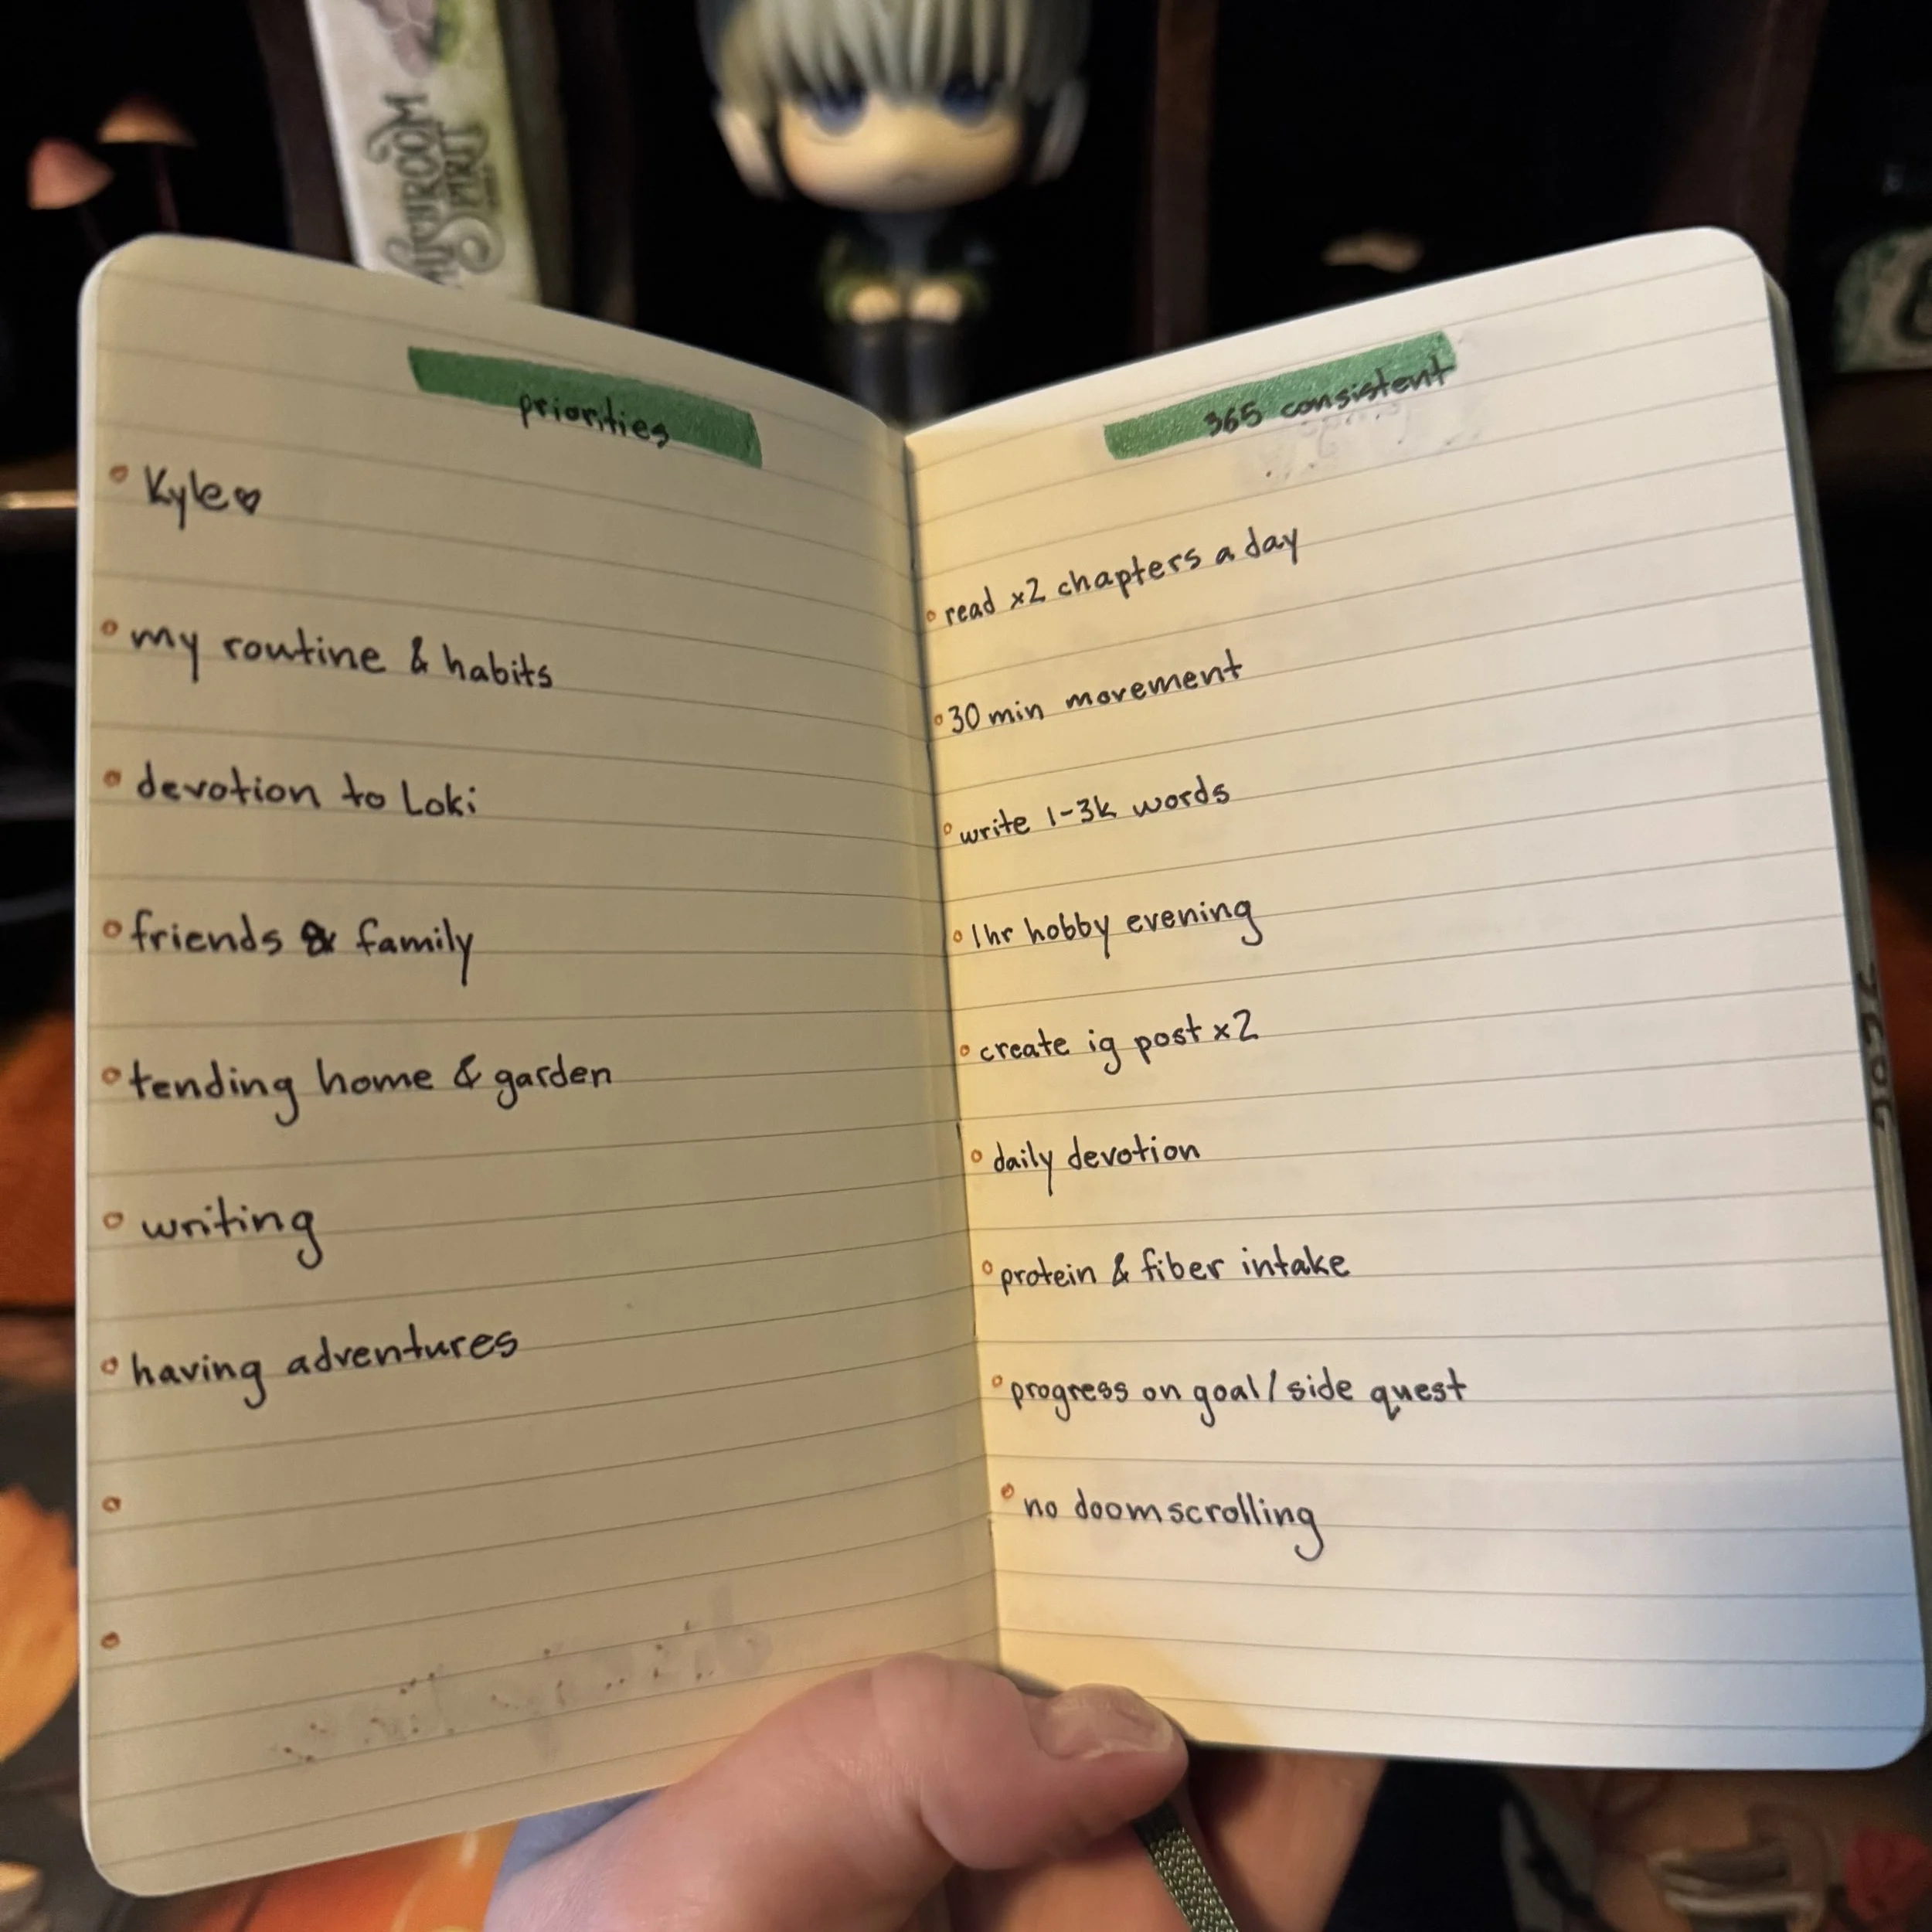 MUSHROOM
SPIRIT
priorities
Kyle♡
my routine & habits
devotion to Loki
friends & family
tending home & garden
writing
having adventures
365 consistent
read x2 chapters a day
30 min movement
write 1-3k words
1hr hobby evening
create ig post x2
daily devotion
protein & fiber intake
progress on goal/side quest
no doomscrolling